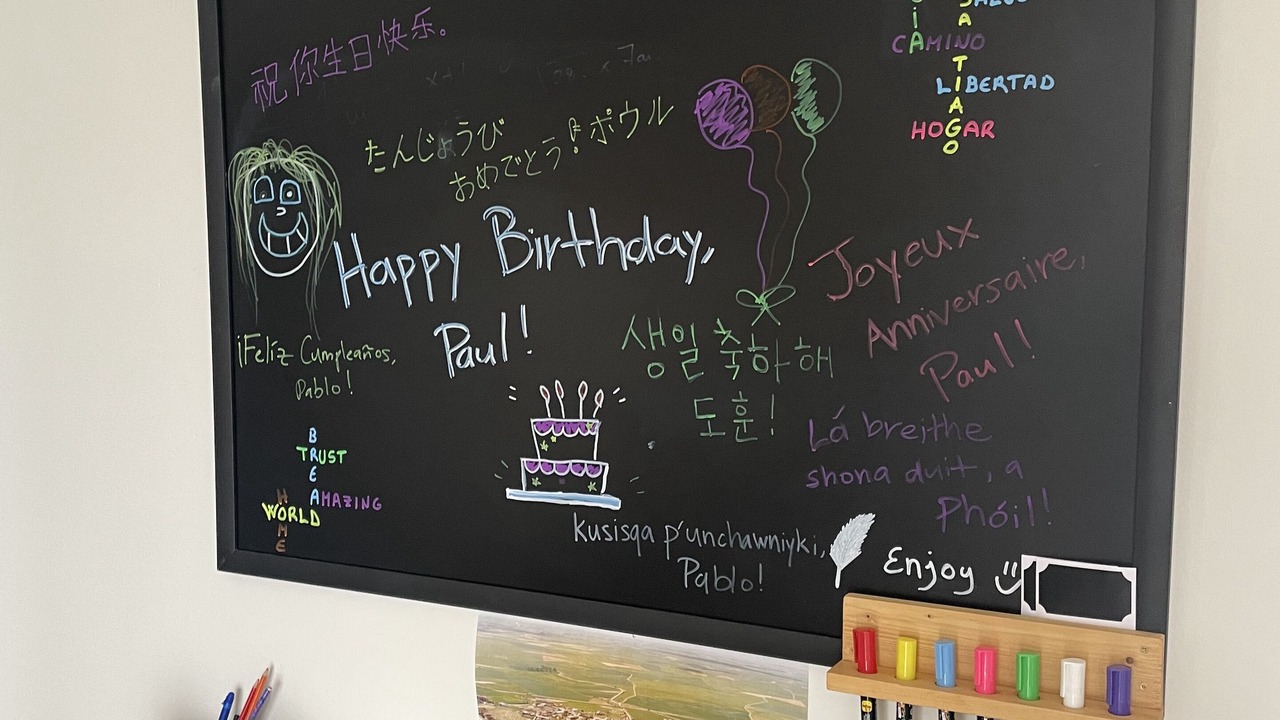 祝你生日快乐。
たんじょうび
おめでとう！ポウル
Happy Birthday,
Paul!
¡Feliz Cumpleaños,
Pablo!
BREA
TRUST
AMAZING
HOME
WORLD
생일 축하해
도훈!
Joyeux
Anniversaire,
Paul!
Lá breithe
shona duit, a
Phóil!
Kusisqa p'unchawniyki,
Pablo!
Enjoy
CAMINO
LIBERTAD
HOGAR